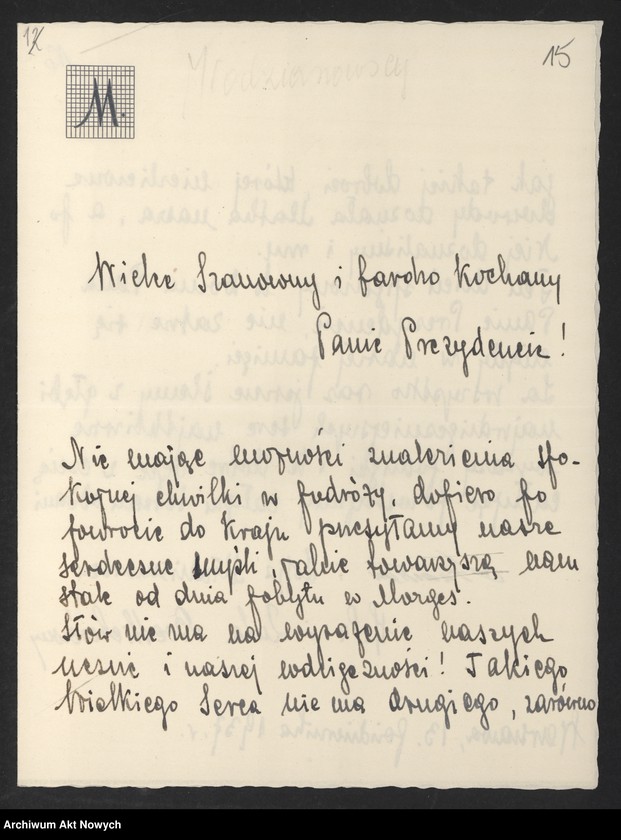 12
15
M.
Wielce Szanowny i bardzo Kochany
Panie Prezydencie!
Nie mając możności znalezienia spo-
kojnej chwilki w podróży, dopiero po
powrocie do Kraju przesyłamy nasze
serdeczne myśli jakie towarzyszą nam
stale od dnia pobytu w Morges.
Słów nie ma na wyrażenie naszych
uczuć i naszej wdzięczności! Takiego
Wielkiego Serca nie ma drugiego, zarówno
Archiwum Akt Nowych